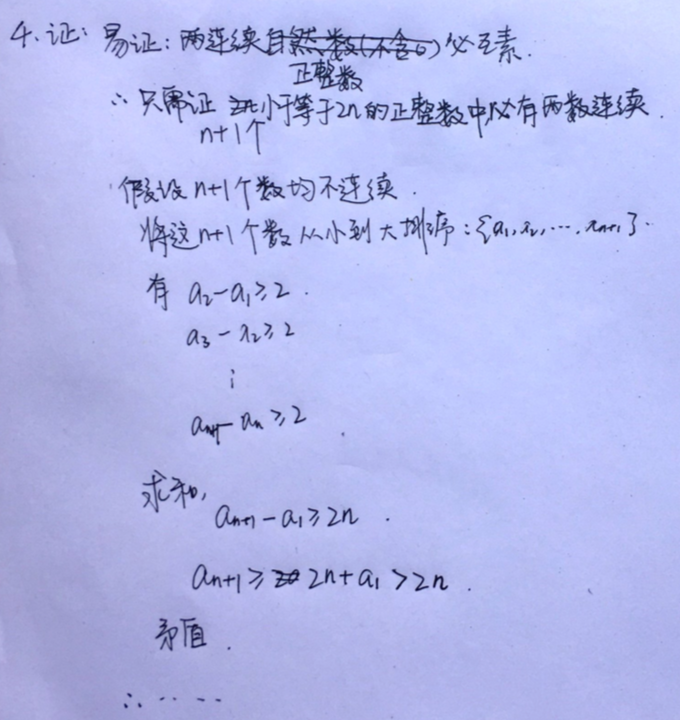 4. 证: 易证: 两连续自然数(不含0)必互素.
正整数
∴ 只需证 小于等于2n的正整数中必有两数连续.
n+1个
假设n+1个数均不连续.
将这n+1个数从小到大排序: {a₁, a₂, ..., aₙ₊₁}.
有 a₂-a₁≥2.
a₃-a₂≥2
⋮
aₙ₊₁-aₙ≥2.
求和,
aₙ₊₁-a₁≥2n.
aₙ₊₁≥2n+a₁>2n.
矛盾.
∴ ......